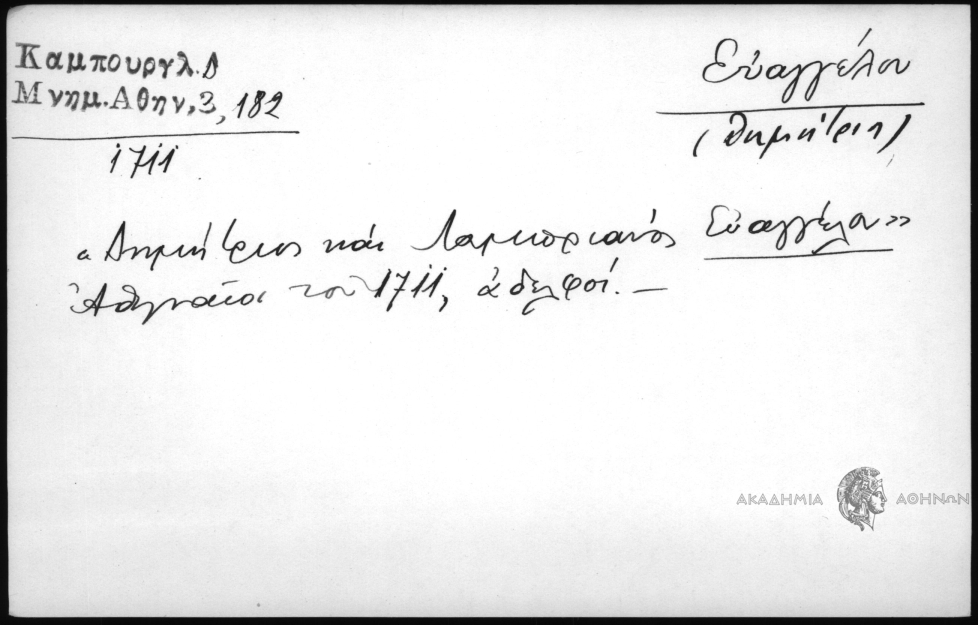 Καμπουργλ.Δ
Μνημ.Αθην,3,182
1711
Εὐαγγέλου
(Δημήτρη)
«Δημήτριος καί Λαμπριανός Εὐαγγέλου»
Ἀθηναῖοι τοῦ 1711, ἀδελφοί. —
ΑΚΑΔΗΜΙΑ ΑΘΗΝΩΝ